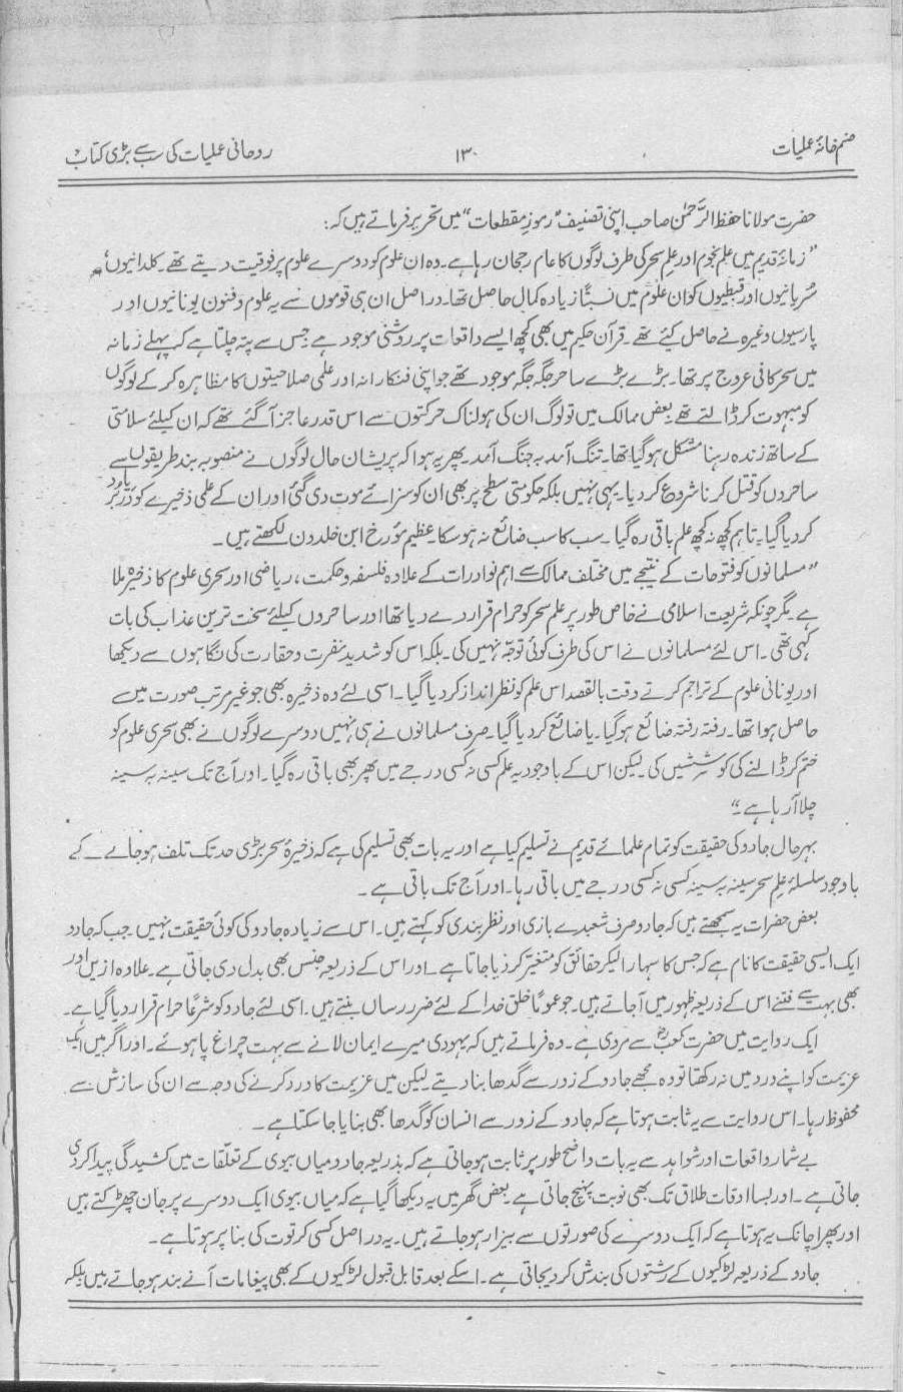 صنم خانۂ عملیات
۱۳۰
روحانی عملیات کی سب سے بڑی کتاب
حضرت مولانا حفظ الرّحمٰن صاحب اپنی تصنیف "رموز مقطعات" میں تحریر فرماتے ہیں کہ:
"زمانۂ قدیم میں علمِ نجوم اور علمِ سحر کی طرف لوگوں کا عام رجحان رہا ہے۔ وہ ان علوم کو دوسرے علوم پر فوقیت دیتے تھے۔ کلدانیوں،
سُریانیوں اور قبطیوں کو ان علوم میں نسبتاً زیادہ کمال حاصل تھا۔ دراصل ان ہی قوموں سے یہ علوم و فنون یونانیوں اور
پارسیوں وغیرہ نے حاصل کیئے تھے۔ قرآن حکیم میں بھی کچھ ایسے واقعات پر روشنی موجود ہے جس سے پتہ چلتا ہے کہ پہلے زمانہ
میں سحر کافی عروج پر تھا۔ بڑے بڑے ساحر جگہ جگہ موجود تھے جو اپنی فنکارانہ اور علمی صلاحیتوں کا مظاہرہ کر کے لوگوں
کو مبہوت کر ڈالتے تھے بعض ممالک میں تو لوگ ان کی ہولناک حرکتوں سے اس قدر عاجز آ گئے تھے کہ ان کیلئے سلامتی
کے ساتھ زندہ رہنا مشکل ہو گیا تھا۔ تنگ آمد بہ جنگ آمد۔ پھر یہ ہوا کہ پریشان حال لوگوں نے منصوبہ بند طریقوں سے
ساحروں کو قتل کرنا شروع کر دیا۔ یہی نہیں بلکہ حکومتی سطح پر بھی ان کو سزائے موت دی گئی اور ان کے علمی ذخیرے کو نذر برباد
کر دیا گیا۔ تاہم کچھ نہ کچھ علم باقی رہ گیا۔ سب کا سب ضائع نہ ہو سکا۔ عظیم مؤرخ ابن خلدون لکھتے ہیں۔
"مسلمانوں کو فتوحات کے نتیجے میں مختلف ممالک سے اہم نوادرات کے علاوہ فلسفہ و حکمت، ریاضی اور سحری علوم کا ذخیرہ ملا
ہے۔ مگر چونکہ شریعت اسلامی نے خاص طور پر علم سحر کو حرام قرار دے دیا تھا اور ساحروں کیلئے سخت ترین عذاب کی بات
کہی تھی۔ اس لئے مسلمانوں نے اس کی طرف کوئی توجّہ نہیں کی۔ بلکہ اس کو شدید نفرت و حقارت کی نگاہوں سے دیکھا
اور یونانی علوم کے تراجم کرتے وقت بالقصد اس علم کو نظر انداز کر دیا گیا۔ اسی لئے وہ ذخیرہ بھی جو غیر مرتب صورت میں
حاصل ہوا تھا۔ رفتہ رفتہ ضائع ہو گیا۔ یا ضائع کر دیا گیا۔ صرف مسلمانوں نے ہی نہیں دوسرے لوگوں نے بھی سحری علوم کو
ختم کر ڈالنے کی کوششیں کی۔ لیکن اس کے باوجود یہ علم کسی نہ کسی درجے میں پھر بھی باقی رہ گیا۔ اور آج تک سینہ بہ سینہ
چلا آ رہا ہے۔"
بہر حال جادو کی حقیقت کو تمام علمائے قدیم نے تسلیم کیا ہے اور یہ بات بھی تسلیم کی ہے کہ ذخیرۂ سحر بڑی حد تک تلف ہو جانے کے
باوجود سلسلۂ علم سحر سینہ بہ سینہ کسی نہ کسی درجے میں باقی رہا۔ اور آج تک باقی ہے۔
بعض حضرات یہ سمجھتے ہیں کہ جادو صرف شعبدے بازی اور نظر بندی کو کہتے ہیں۔ اس سے زیادہ جادو کی کوئی حقیقت نہیں۔ جب کہ جادو
ایک ایسی حقیقت کا نام ہے کہ جس کا سہارا لیکر حقائق کو متغیّر کر دیا جاتا ہے۔ اور اس کے ذریعہ جنس بھی بدل دی جاتی ہے۔ علاوہ ازیں اور
بھی بہت سے فتنے اس کے ذریعہ ظہور میں آ جاتے ہیں۔ جو عموماً خلق خدا کے لئے ضرر رساں بنتے ہیں۔ اسی لئے جادو کو شرعاً حرام قرار دیا گیا ہے۔
ایک روایت میں حضرت کعبؓ سے مروی ہے۔ وہ فرماتے ہیں کہ یہودی میرے ایمان لانے سے بہت چراغ پا ہوئے۔ اور اگر میں ایک
عزیمت کو اپنے ورد میں نہ رکھتا تو وہ مجھے جادو کے زور سے گدھا بنا دیتے۔ لیکن میں عزیمت کا ورد کرنے کی وجہ سے ان کی سازش سے
محفوظ رہا۔ اس روایت سے یہ ثابت ہوتا ہے کہ جادو کے زور سے انسان کو گدھا بھی بنایا جا سکتا ہے۔
بے شمار واقعات اور شواہد سے یہ بات واضح طور پر ثابت ہو جاتی ہے کہ بذریعہ جادو میاں بیوی کے تعلّقات میں کشیدگی پیدا کر دی
جاتی ہے۔ اور بسا اوقات طلاق تک بھی نوبت پہنچ جاتی ہے بعض گھر میں یہ دیکھا گیا ہے کہ میاں بیوی ایک دوسرے پر جان چھڑکتے ہیں
اور پھر اچانک یہ ہوتا ہے کہ ایک دوسرے کی صورتوں سے بیزار ہو جاتے ہیں۔ یہ دراصل کسی کرتوت کی بنا پر ہوتا ہے۔
جادو کے ذریعہ لڑکیوں کے رشتوں کی بندش کر دیجاتی ہے۔ اسکے بعد قابل قبول لڑکیوں کے بھی پیغامات آنے بند ہو جاتے ہیں بلکہ